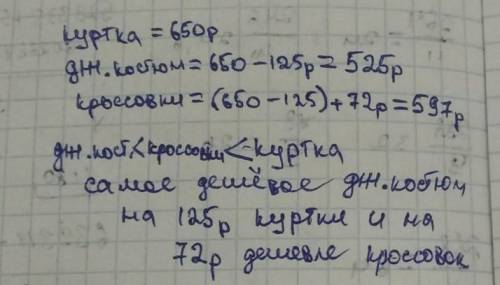 куртка = 650р
дж.костюм = 650 - 125р = 525р
кроссовки = (650 - 125) + 72р = 597р
дж.кост.<кроссовки<куртка
самое дешёвое дж.костюм
на 125р куртки и на
72р дешевле кроссовок